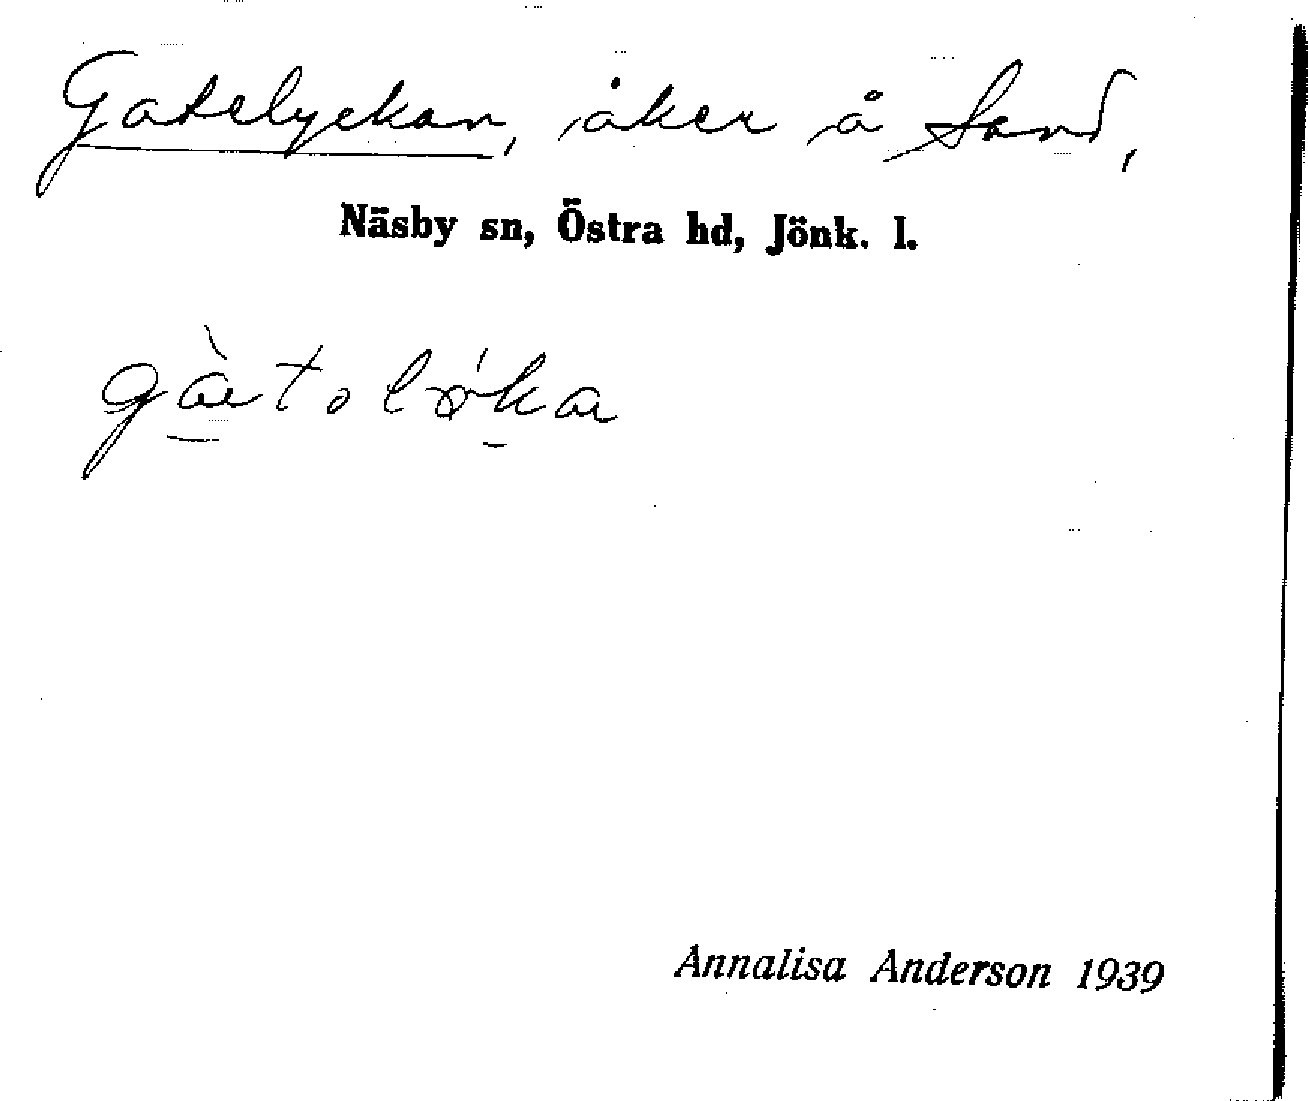 Gatelyckan, åker å Sand,
Näsby sn, Östra hd, Jönk. l.
gàtəlýka
Annalisa Anderson 1939